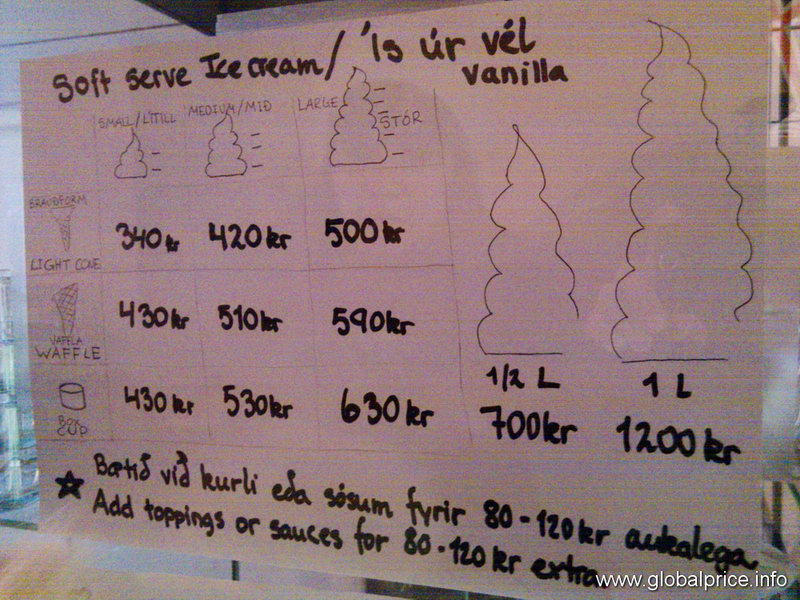 Soft serve Ice cream / Ís úr vél
vanilla
SMALL/LÍTILL MEDIUM/MIÐ LARGE STÓR
BRAUÐFORM
LIGHT CONE
340 kr 420 kr 500 kr
VAFFLA
WAFFLE
430 kr 510 kr 590 kr
BOX
CUP
430 kr 530 kr 630 kr
1/2 L
700 kr
1 L
1200 kr
Bætið við kurli eða sósum fyrir 80-120 kr aukalega
Add toppings or sauces for 80-120 kr extra
www.globalprice.info